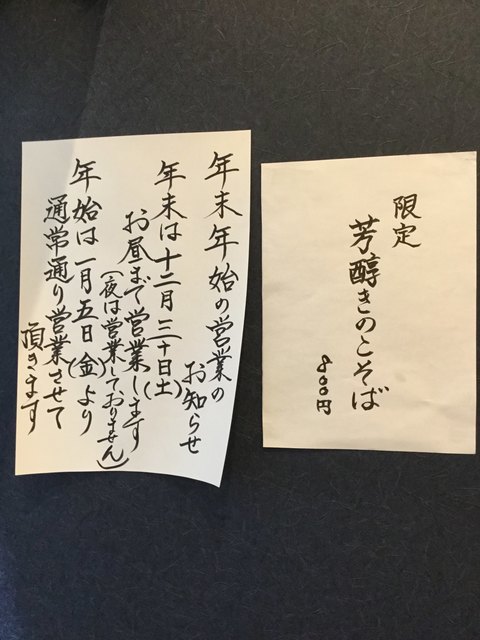 限定
芳醇きのこそば
800円
年末年始の営業の
お知らせ
年末は十二月三十日(土)
お昼まで営業します
(夜は営業しておりません)
年始は一月五日(金)より
通常通り営業させて
頂きます